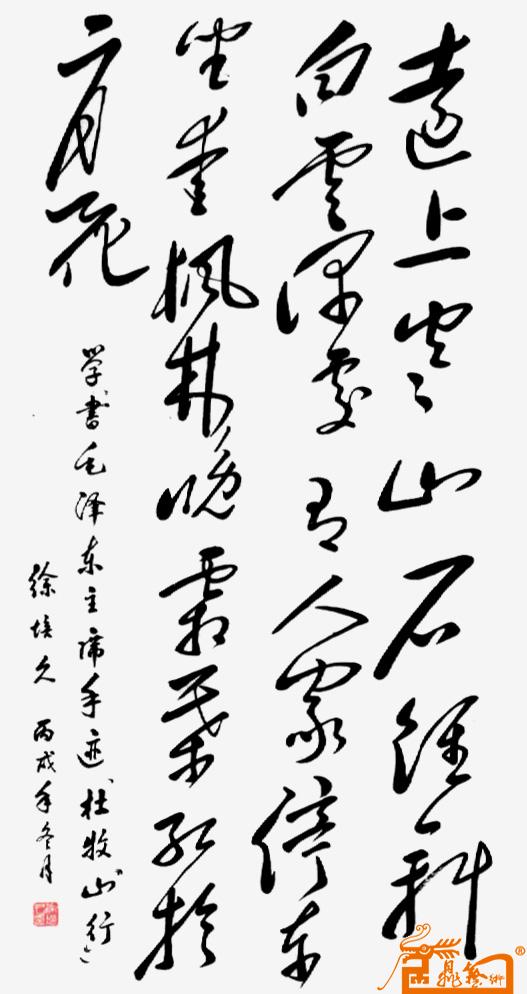 遠上寒山石径斜
白雲深處有人家停车
坐愛楓林晚霜葉红於
二月花
学书毛泽东主席手迹“杜牧《山行》”
徐培久 丙戌年冬月